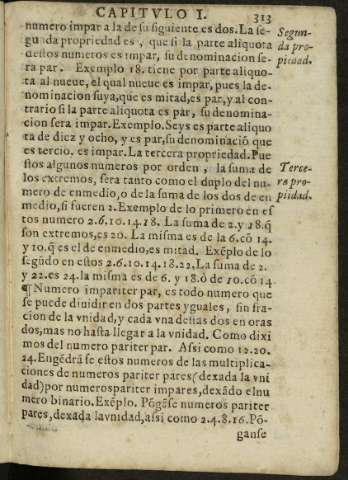 CAPITVLO I. 313
numero impar a la de su siguiente es dos. La se-
gunda propriedad es, que si la parte aliquota
destos numeros es impar, su denominacion se-
ra par. Exemplo 18. tiene por parte aliquo-
ta al nueue, el qual nueue es impar, pues la de-
nominacion suya, que es mitad, es par, y al con-
trario si la parte aliquota es par, su denomina-
cion sera impar. Exemplo. Seys es parte aliquo
ta de diez y ocho, y es par, su denominaciõ que
es tercio. es impar. La tercera propriedad. Pue
stos algunos numeros por orden, la suma de
los extremos, sera tanto como el duplo del nu-
mero de enmedio, o de la suma de los dos de en
medio, si fueren 2. Exemplo de lo primero en es
tos numero 2.6.10.14.18. La suma de 2. y 18. q̃
son extremos, es 20. La misma es de la 6. cõ 14.
y 10. q̃ es el de enmedio, es mitad. Exẽplo de lo
segũdo en estos 2.6.10.14.18.22. La suma de 2.
y 22. es 24. la misma es de 6. y 18. ò de 10. cõ 14.
¶ Numero impariter par, es todo numero que
se puede diuidir en dos partes yguales, sin fra-
cion de la vnidad, y cada vna destas dos en otras
dos, mas no hasta llegar a la vnidad. Como dixi
mos del numero pariter par. Assi como 12. 20.
24. Engẽdrã se estos numeros de las multiplica-
ciones de numeros pariter pares (dexada la vni
dad) por numeros pariter impares, dexãdo el nu
mero binario. Exẽplo. Põgãse numeros pariter
pares, dexada la vnidad, assi como 2.4.8.16. Põ-
ganse
Segun-
da pro-
piedad.
Terce-
ra pro-
piedad.